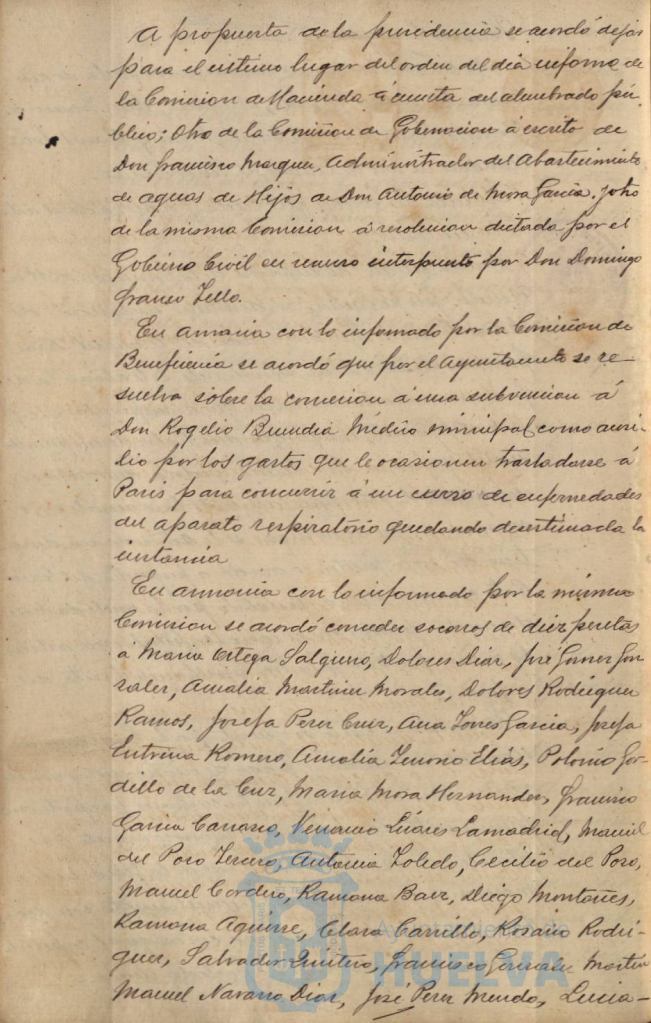 A propuesta de la presidencia se acordó dejar
para el último lugar del orden del dia informe de
la Comision de Hacienda á cuenta del alumbrado pú-
blico; otro de la Comision de Gobernacion á escrito de
Don Francisco Marquez, Administrador del Abastecimiento
de aguas de Hijos de Don Antonio de Mora Garcia. y otro
de la misma Comision á resolucion dictada por el
Gobierno Civil en recurso interpuesto por Don Domingo
Franco Tello.
En armonia con lo informado por la Comision de
Beneficencia se acordó que por el Ayuntamiento se re-
suelva sobre la concesion á una subvencion á
Don Rogelio Buendia Médico municipal como auxi-
lio por los gastos que le ocasionen trasladarse á
Paris para concurrir á un curso de enfermedades
del aparato respiratorio quedando desestimada la
instancia
En armonia con lo informado por la misma
Comision se acordó conceder socorros de diez pesetas
á Maria Ortega Salguero, Dolores Diaz, José Gomez Gon-
zalez, Amalia Martinez Morales, Dolores Rodriguez
Ramos, Josefa Perez Cruz, Ana Torres Garcia, Josefa
Entrena Romero, Amalia Tenorio Elias, Polonio Gor-
dillo de la Cruz, Maria Mora Hernandez, Francisco
Garcia Carrasco, Venancio Liñares Lamadrid, Manuel
del Pozo Tercero, Antonia Toledo, Cecilio del Pozo,
Manuel Cordero, Ramona Baez, Diego Montañes,
Ramona Aguirre, Clara Carrillo, Rosario Rodri-
guez, Salvador Quintero, Francisco Gonzalez Martin
Manuel Navarro Diaz, José Perez Mendo, Lucia-
HUELVA